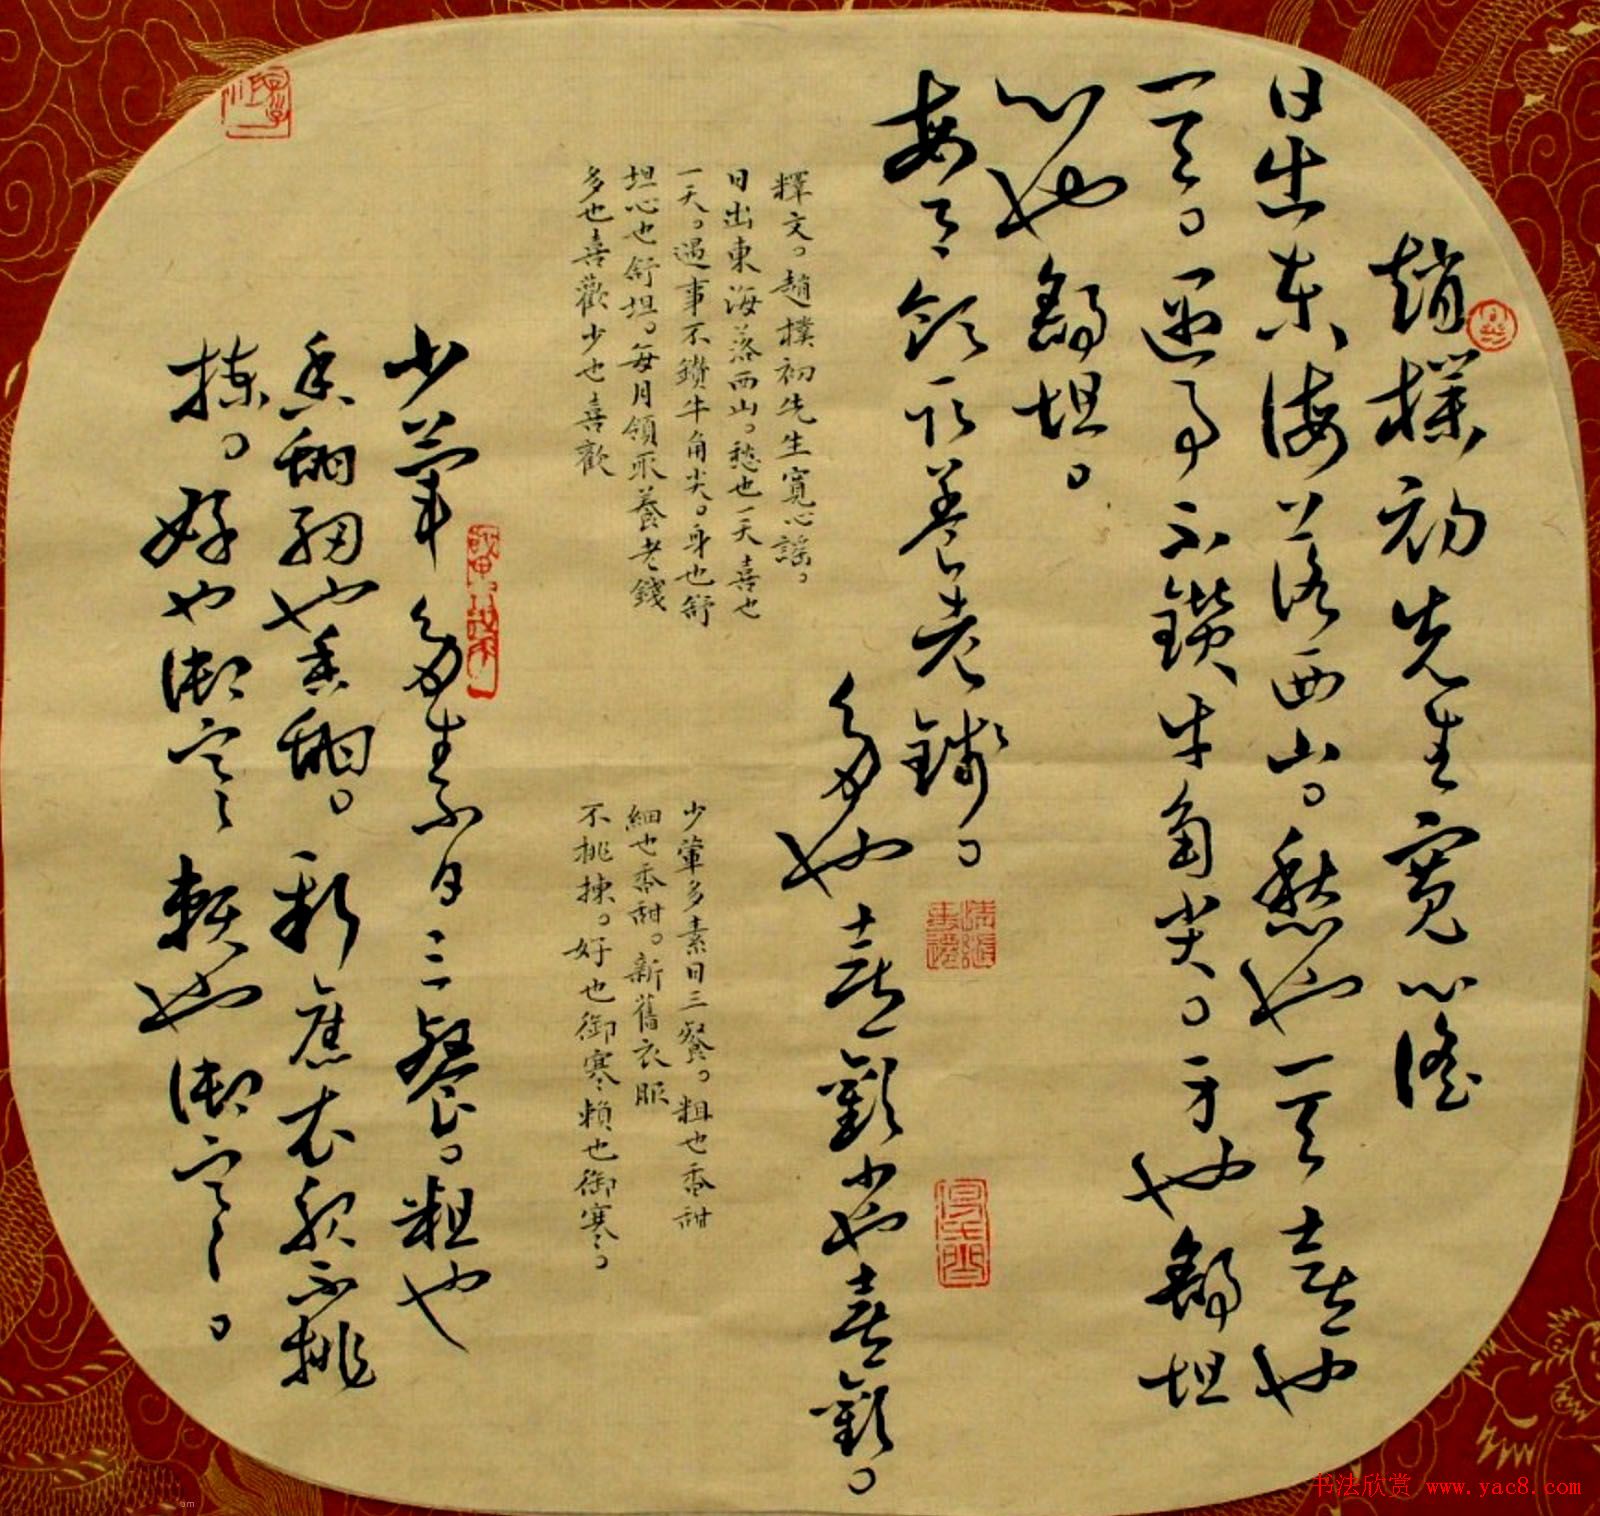 趙樸初先生寬心謠
日出東海落西山。愁也一天喜也
一天。遇事不鑽牛角尖。身也舒坦
心也舒坦。
每月領取養老錢。
多也喜歡少也喜歡。
釋文。趙樸初先生寬心謠。
日出東海落西山。愁也一天喜也
一天。遇事不鑽牛角尖。身也舒
坦心也舒坦。每月領取養老錢
多也喜歡少也喜歡
少葷多素日三餐。粗也香甜
細也香甜。新舊衣服
不挑揀。好也御寒賴也御寒。
少葷多素日三餐。粗也
香甜細也香甜。新舊衣服不挑
揀。好也御寒賴也御寒。
书法欣赏 www.yac8.com